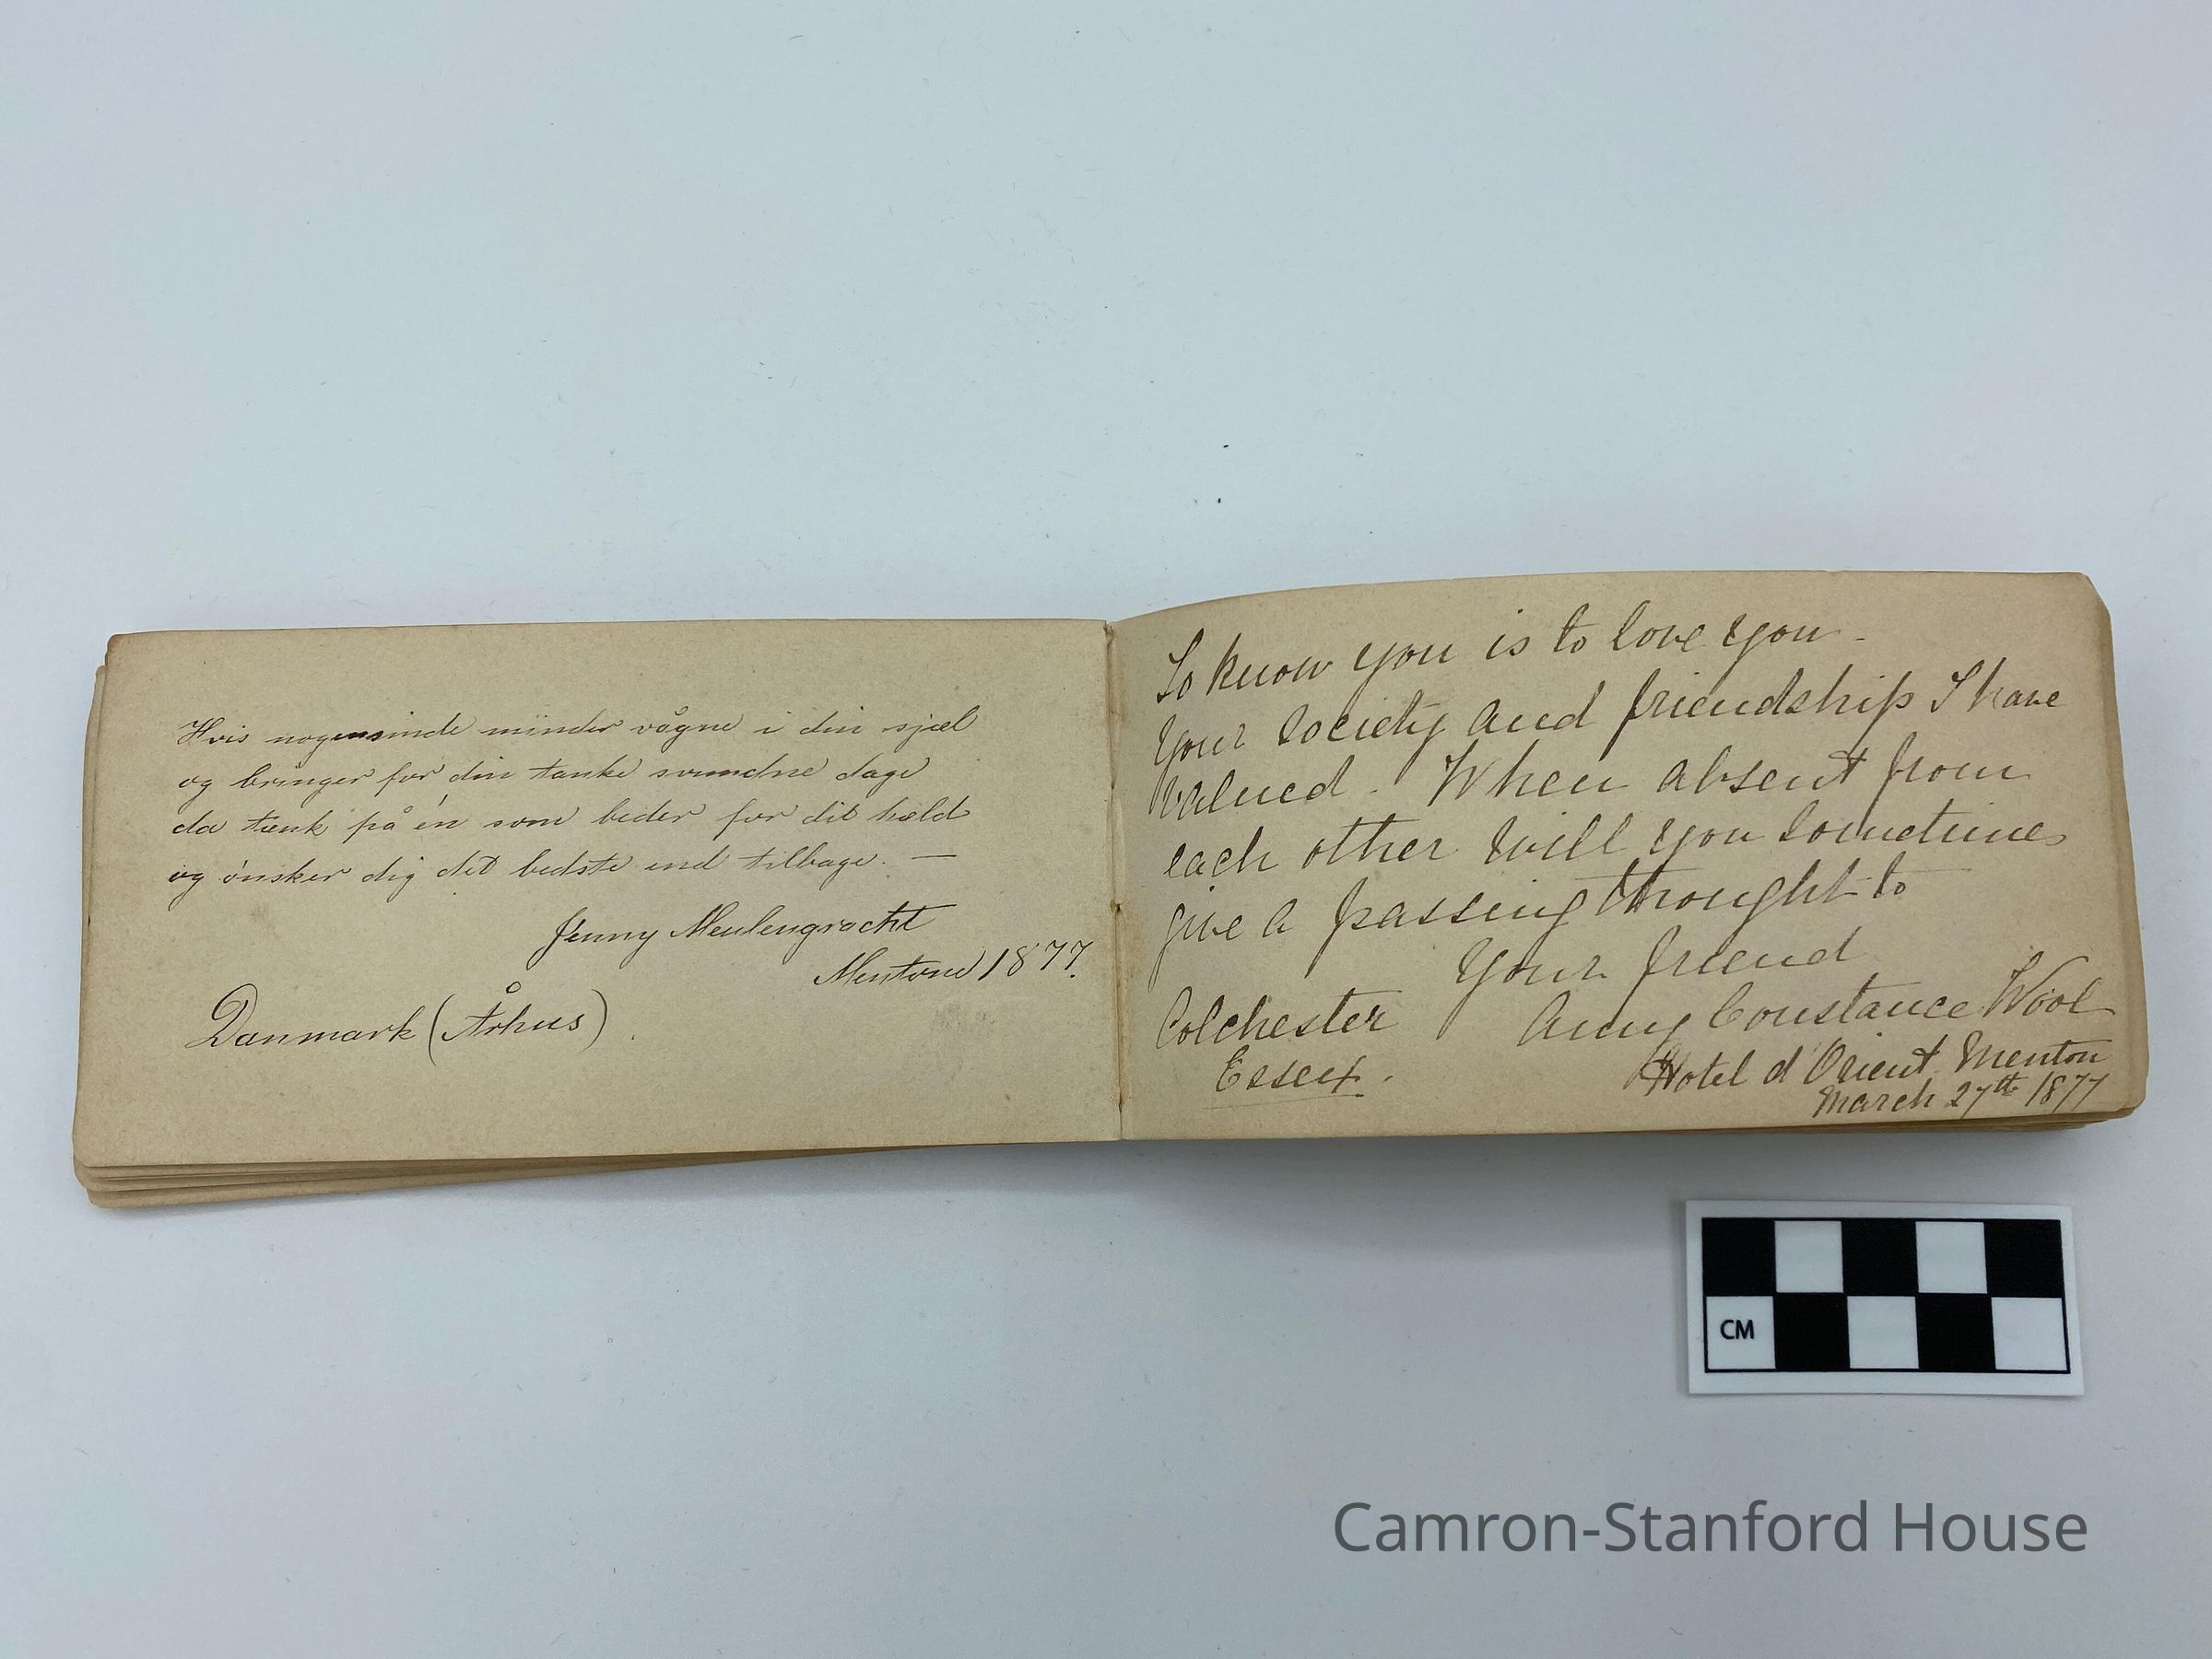 Hvis nogensinde minder vågne i din sjæl
og bringer for din tanke svundne dage
da tænk på én som beder for dit hæld
og ønsker dig det bedste end tilbage. —
Jenny Meulengracht
Mentone 1877.
Danmark (Århus).
To know you is to love you -
Your society and friendship I have
valued. When absent from
each other will you sometimes
give a passing thought to
Your friend
Amy Constance Wool
Colchester
Essex.
Hotel d'Orient Menton
March 27th 1877
CM
Camron-Stanford House